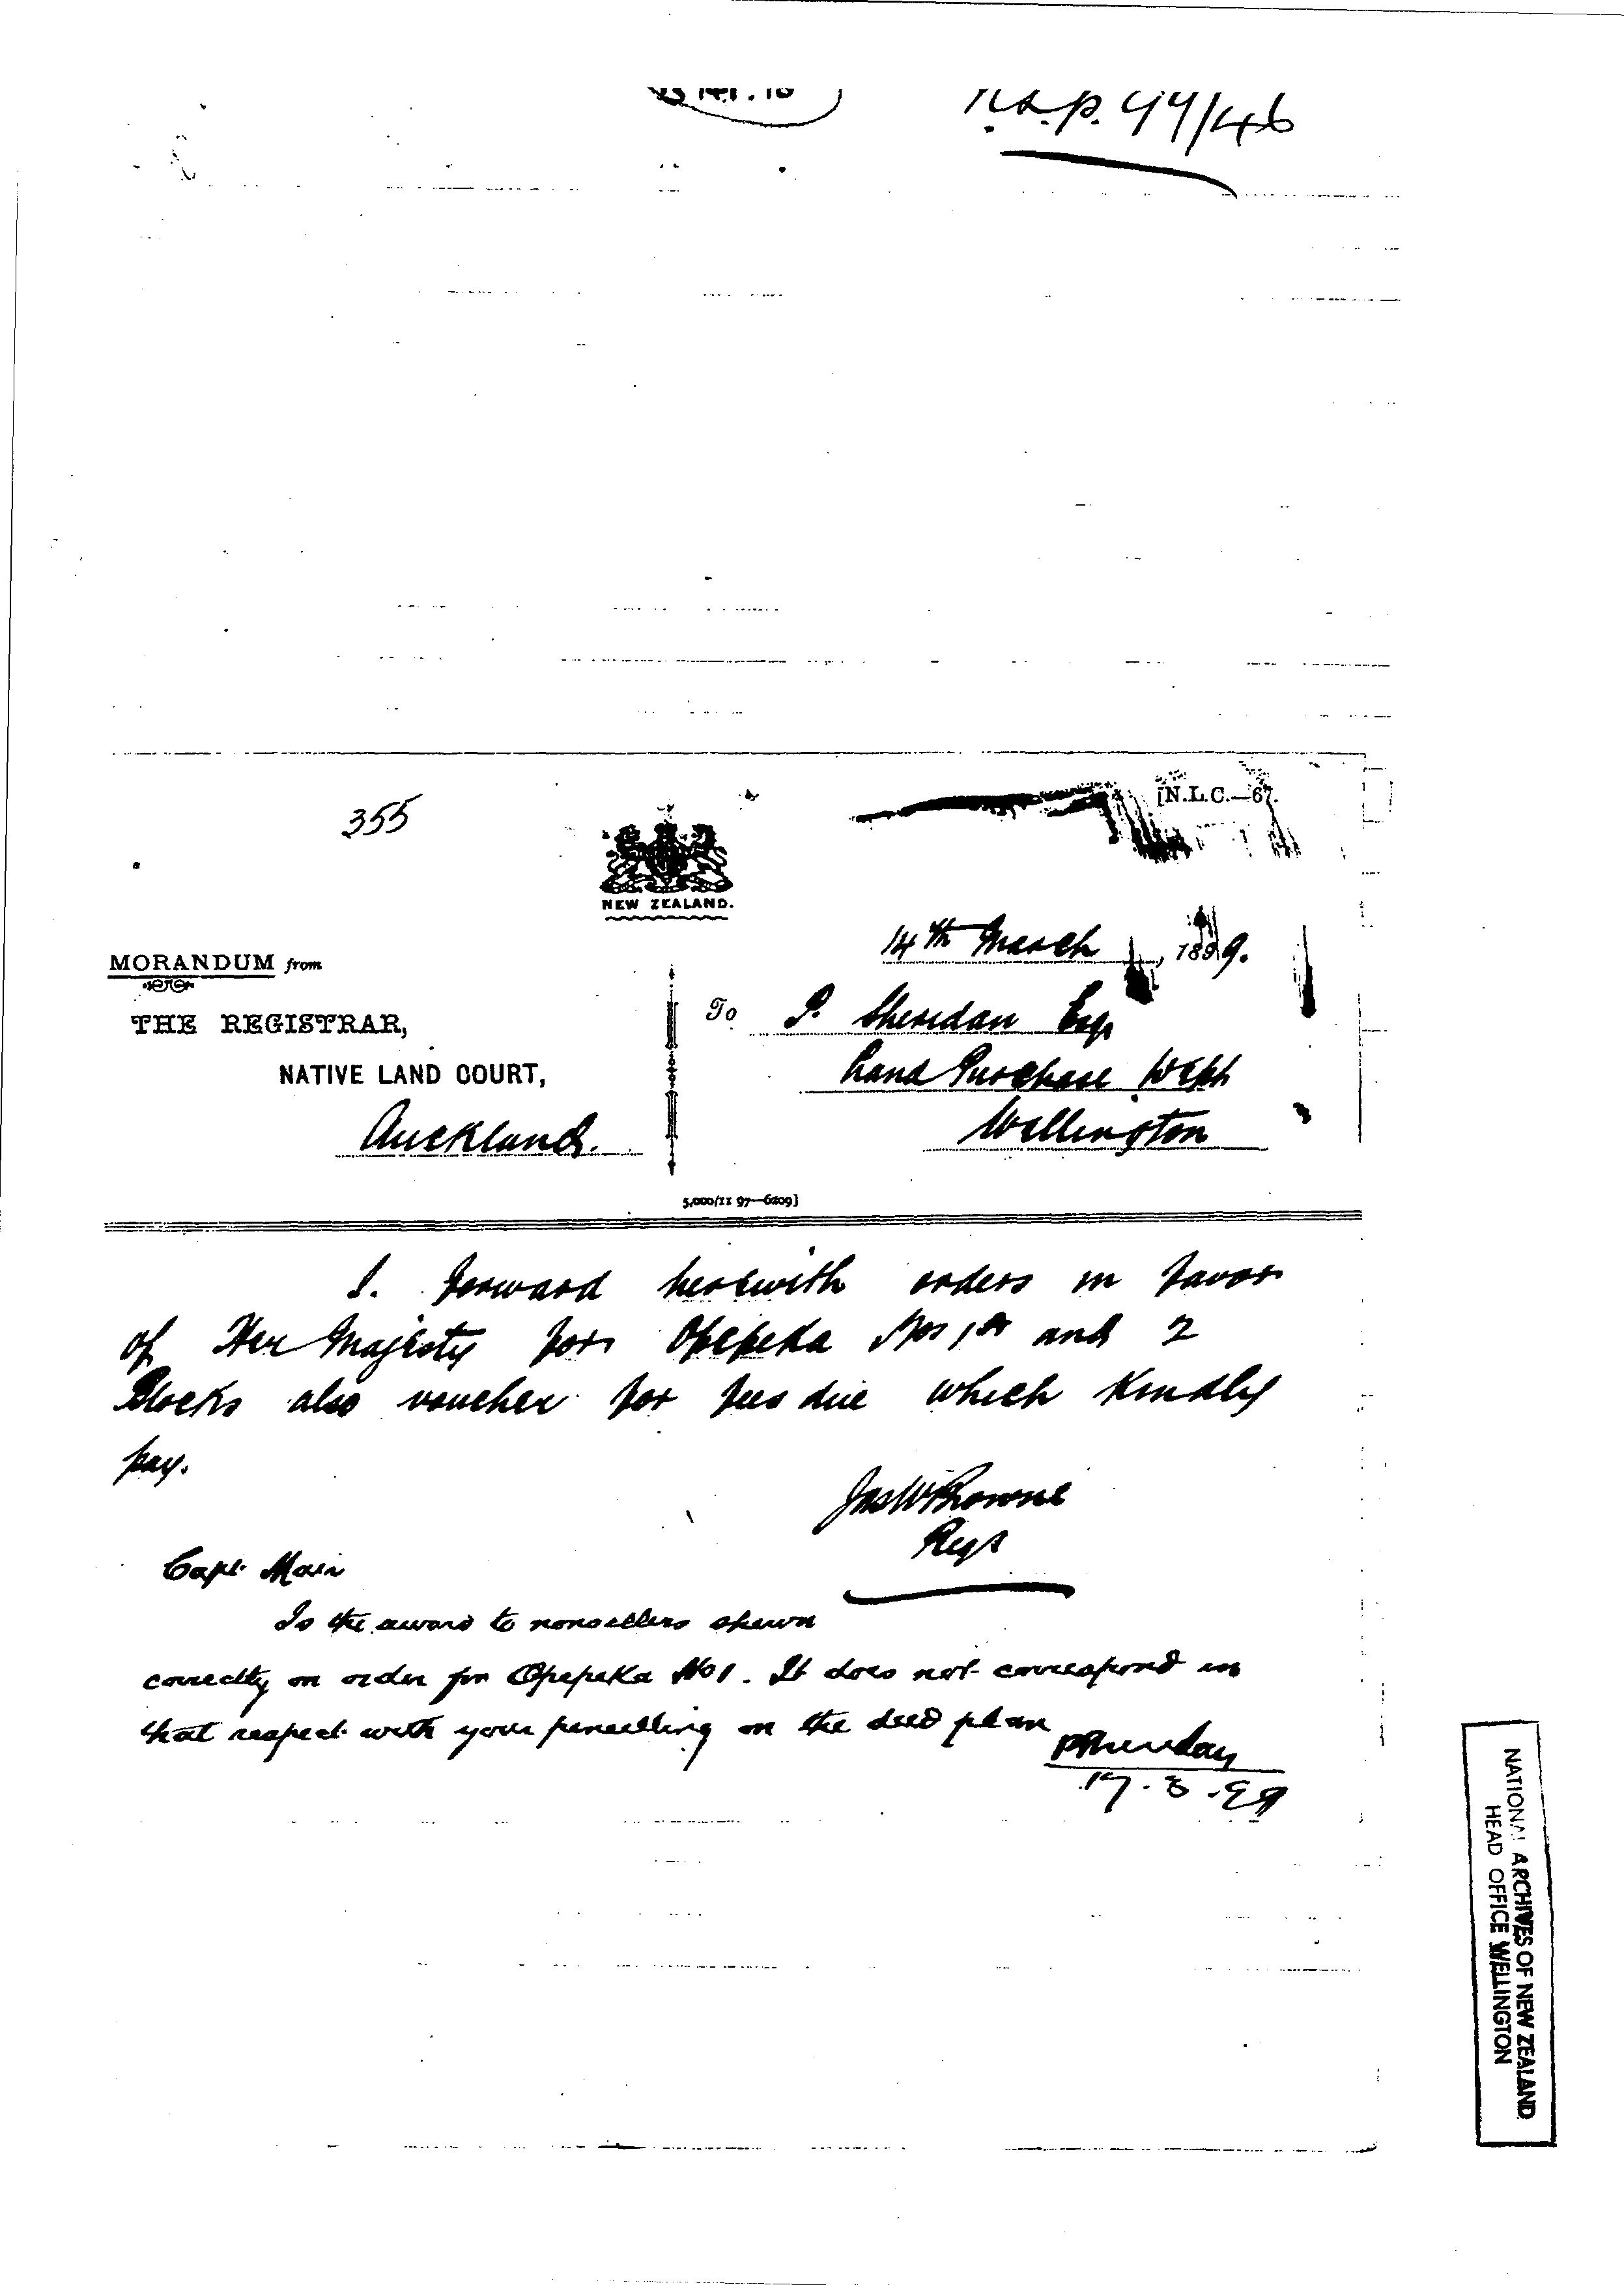 99/46
355
[N.L.C.—67.
NEW ZEALAND.
14th March, 1899.
MORANDUM from
THE REGISTRAR,
NATIVE LAND COURT,
Auckland.
To P. Sheridan Esqr
Land Purchase Dept
Wellington
5,000/11 97—6209]
I forward herewith orders in favor
of Her Majesty for Opepeka Nos 1 and 2
Blocks also voucher for fees due which kindly
pay.
Jas W Browne
Regr
Capt. Mair
Is the award to nonsellers shewn
correctly on order for Opepeka No 1. It does not correspond in
that respect with your pencilling on the deed plan
P Sheridan
17.3.99
NATIONAL ARCHIVES OF NEW ZEALAND
HEAD OFFICE WELLINGTON